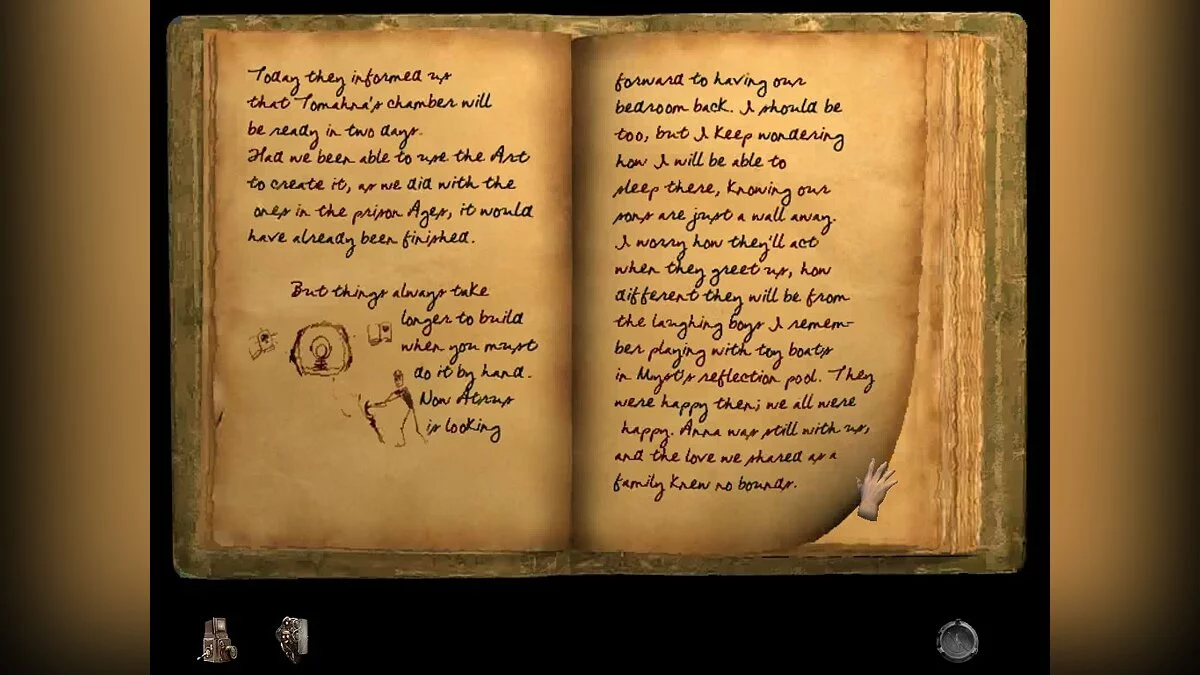 Today they informed us
that Tomahna's chamber will
be ready in two days.
Had we been able to use the Art
to create it, as we did with the
ones in the prison Ages, it would
have already been finished.
But things always take
longer to build
when you must
do it by hand.
Now Atrus
is looking
forward to having our
bedroom back. I should be
too, but I keep wondering
how I will be able to
sleep there, knowing our
sons are just a wall away.
I worry how they'll act
when they greet us, how
different they will be from
the laughing boys I remem-
ber playing with toy boats
in Myst's reflection pool. They
were happy then; we all were
happy. Anna was still with us,
and the love we shared as a
family knew no bounds.